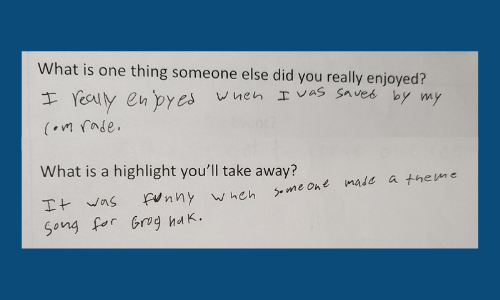 What is one thing someone else did you really enjoyed?
I really enjoyed when I was saved by my
comrade.
What is a highlight you'll take away?
It was funny when someone made a theme
song for Grog nak.